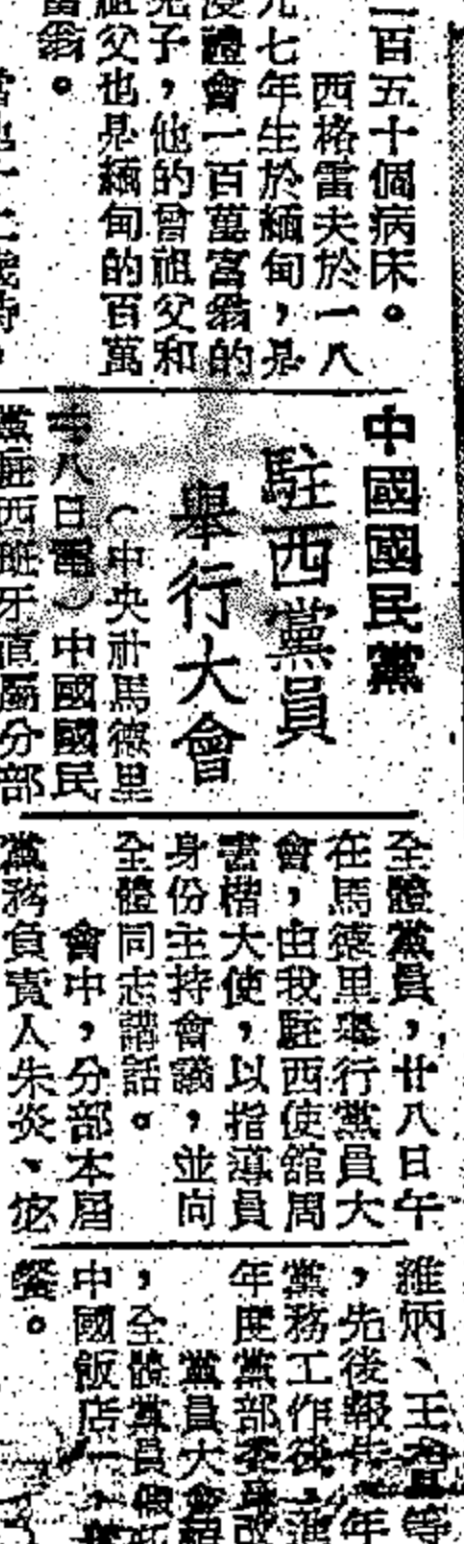 二百五十個病床。
西格雷夫於一八
九七年生於緬甸，是
浸禮會一百萬富翁的
兒子，他的曾祖父和
祖父也是緬甸的百萬
富翁。
中國國民黨
駐西黨員
舉行大會
（中央社馬德里
廿八日電）中國國民
黨駐西班牙直屬分部
全體黨員，廿八日午
在馬德里舉行黨員大
會，由我駐西使館周
書楷大使，以指導員
身份主持會議，並向
全體同志講話。
會中，分部本屆
黨務負責人朱炎、
維炳、王等
，先後報年
黨務工作後，進
年度黨部委員改
黨員大會
，全體黨員
中國飯店
餐。